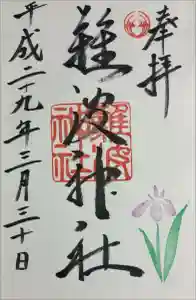 奉拝
難波神社
平成二十九年三月三十日
難波
神社